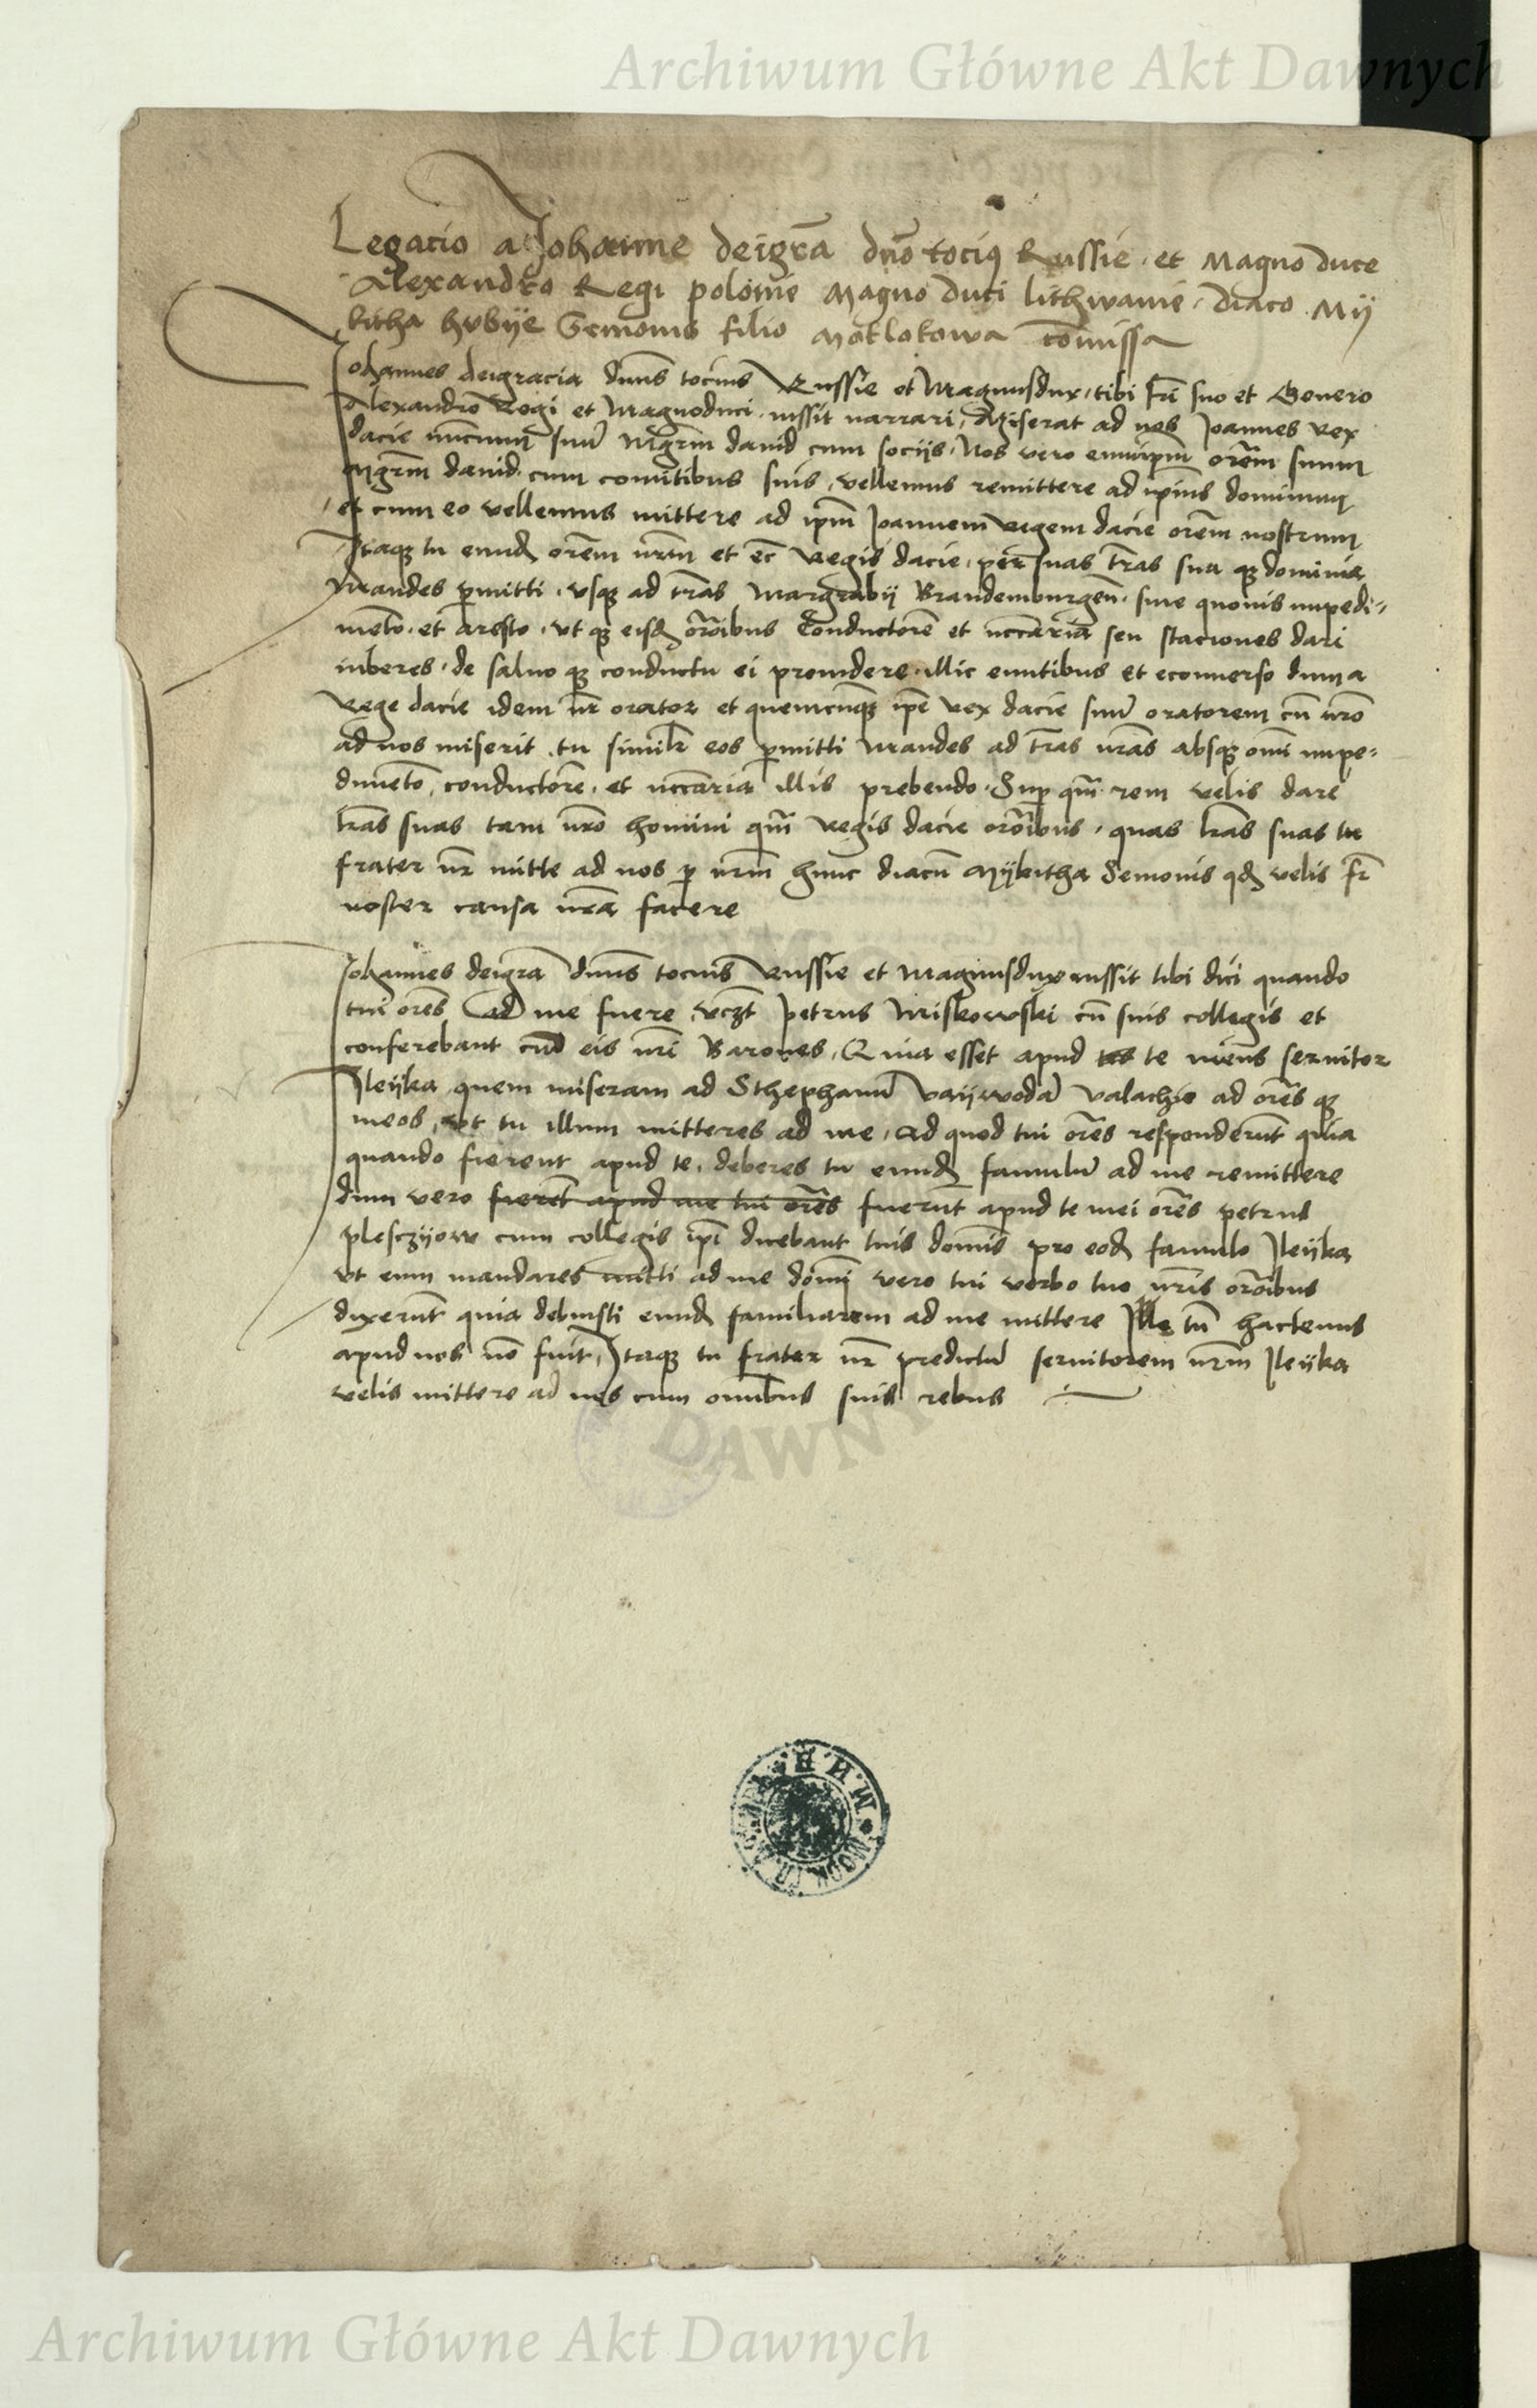 Archiwum Główne Akt Dawnych
Legacio a Johanne deigra͞ dno͞ tociꝰ Russie et Magno duce
Alexandro Regi polonie Magno duci lithwanie diaco Mÿ
kitha hubÿe Semonis filio Motlokowa co͞missa
Johannes deigracia dun͞s tocius Russie et Magnusdux tibi fri͞ suo et Genero
Alexandro Regi et Magnoduci iussit narrari, Miserat ad nos Joannes rex
dacie nunciu͞ suu͞ Mgrm͞ david cum socijs, Nos vero eun͞ ipm͞ ore͞m suum
Mgrm͞ david cum comitibus suis vellemus remittere ad ipius dominum
et cum eo vellemus mittere ad ipm͞ Joannem regem dacie ore͞m nostrum
Itaqꝫ tu eund͞ ore͞m nrm͞ et ec͞ Regis dacie per suas tra͞s sua qꝫ dominia
Mandes p͞mitti vsqꝫ ad tra͞s Margrabij Brandemburgen͞ sine quouis impedi-
meto͞ et aresto vt qꝫ eisd͞ orato͞ibus Conductore͞ et ncca͞ria seu staciones dari
iuberes de saluo qꝫ conductu ei prouidere illic euntibus et econuerso dum a
rege dacie idem nr͞ orator et quemcu͞qꝫ ipe͞ rex dacie suu͞ oratorem cu͞ nro͞
ad nos miserit tu simil͞r eos p͞mitti Mandes ad tra͞s nra͞s absqꝫ omi͞ impe-
dimeto͞ conductore͞ et ncca͞ria illis prebendo Sup͞ qua͞ rem velis dare
lra͞s suas tam nro͞ homini qm͞ regis dacie oro͞ibus quas lra͞s suas tu
frater nr͞ mitte ad nos p͞ nrm͞ hunc diacu͞ Mÿkitha Semonis qd͞ velis fr͞
noster causa nra͞ facere
Johannes deigra͞ dun͞s tocius Russie et Magnusdux iussit tibi dici quando
tui ore͞s ad me fuere vcz͞t petrus Miskowski cu͞ suis collegis et
conferebant cum eis nri͞ Barones, Quia esset apud te meus seruitor
Ileÿka quem miseram ad Sthephanu͞ vaÿwoda͞ valachie ad ore͞s qꝫ
meos vt tu illum mitteres ad me, Ad quod tui ore͞s responderu͞t quia
quando fierent apud te deberes tu eund͞ famulu͞ ad me remittere
dum vero fieret͞ apud me tui ore͞s fueru͞t apud te mei ore͞s petrus
plesczÿow cum collegis ipi͞ dicebant tuis domi͞s pro eod͞ famulo Ileÿka
vt eum mandares mitti ad me domi͞ vero tui verbo tuo nri͞s oro͞ibus
dixeru͞t quia debuisti eund͞ familiarem ad me mittere Ille tn͞ hactenus
apud nos no͞ fuit, Itaqꝫ tu frater nr͞ predictu͞ seruitorem nrm͞ Ileÿka
velis mittere ad nos cum omi͞bus suis rebus
DAWNY
Archiwum Główne Akt Dawnych